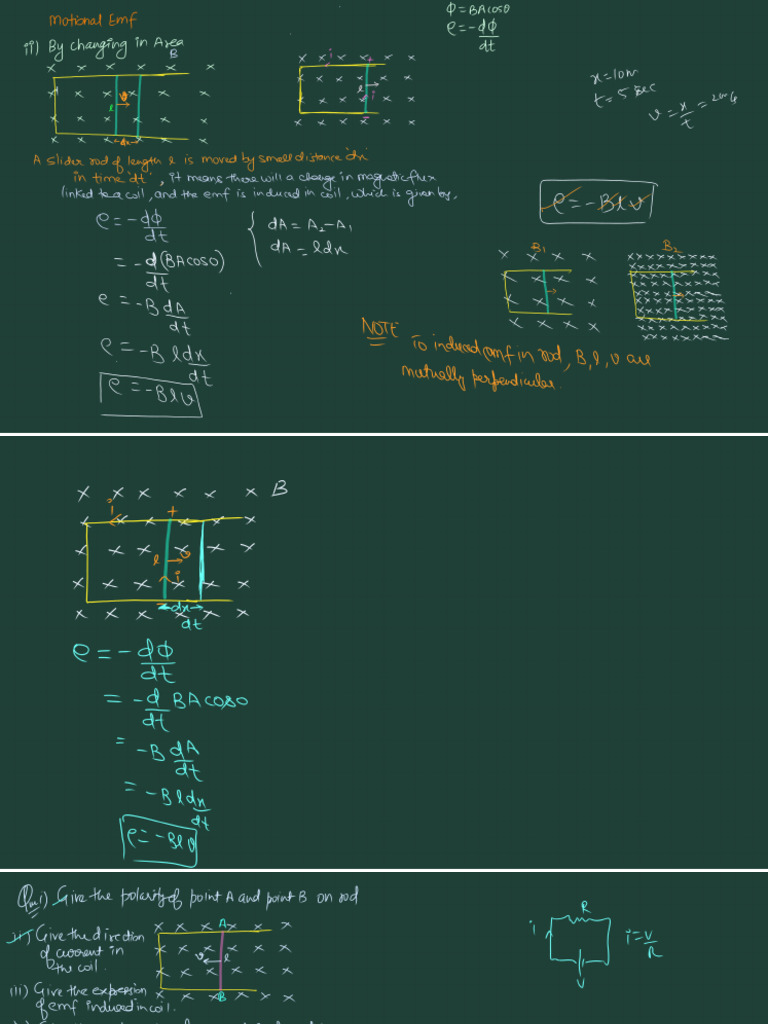 Motional Emf
ii) By changing in Area
B
l
v
dx
i
+
l
i
-
ϕ = BAcosθ
e = -dϕ/dt
x = 10m
t = 5 sec
v = x/t = 2m/s
A slider rod of length l is moved by small distance 'dx'
in time 'dt', it means there will a change in magnetic flux
linked to a coil, and the emf is induced in coil, which is given by,
e = -dϕ/dt
= -d/dt (BAcos0)
e = -B dA/dt
e = -B l dx/dt
e = -Blv
dA = A₂ - A₁
dA = l dx
e = -Blv
B₁
B₂
NOTE To induced emf in rod, B, l, v are
mutually perpendicular.
B
i
+
l
v
i
-
dx
dt
e = -dϕ/dt
= -d/dt BAcos0
= -B dA/dt
= -B l dx/dt
e = -Blv
Que i) Give the polarity of point A and point B on rod
ii) Give the direction
of current in
the coil.
iii) Give the expression
of emf induced in coil.
A
v
l
B
R
i
V
i = V/R